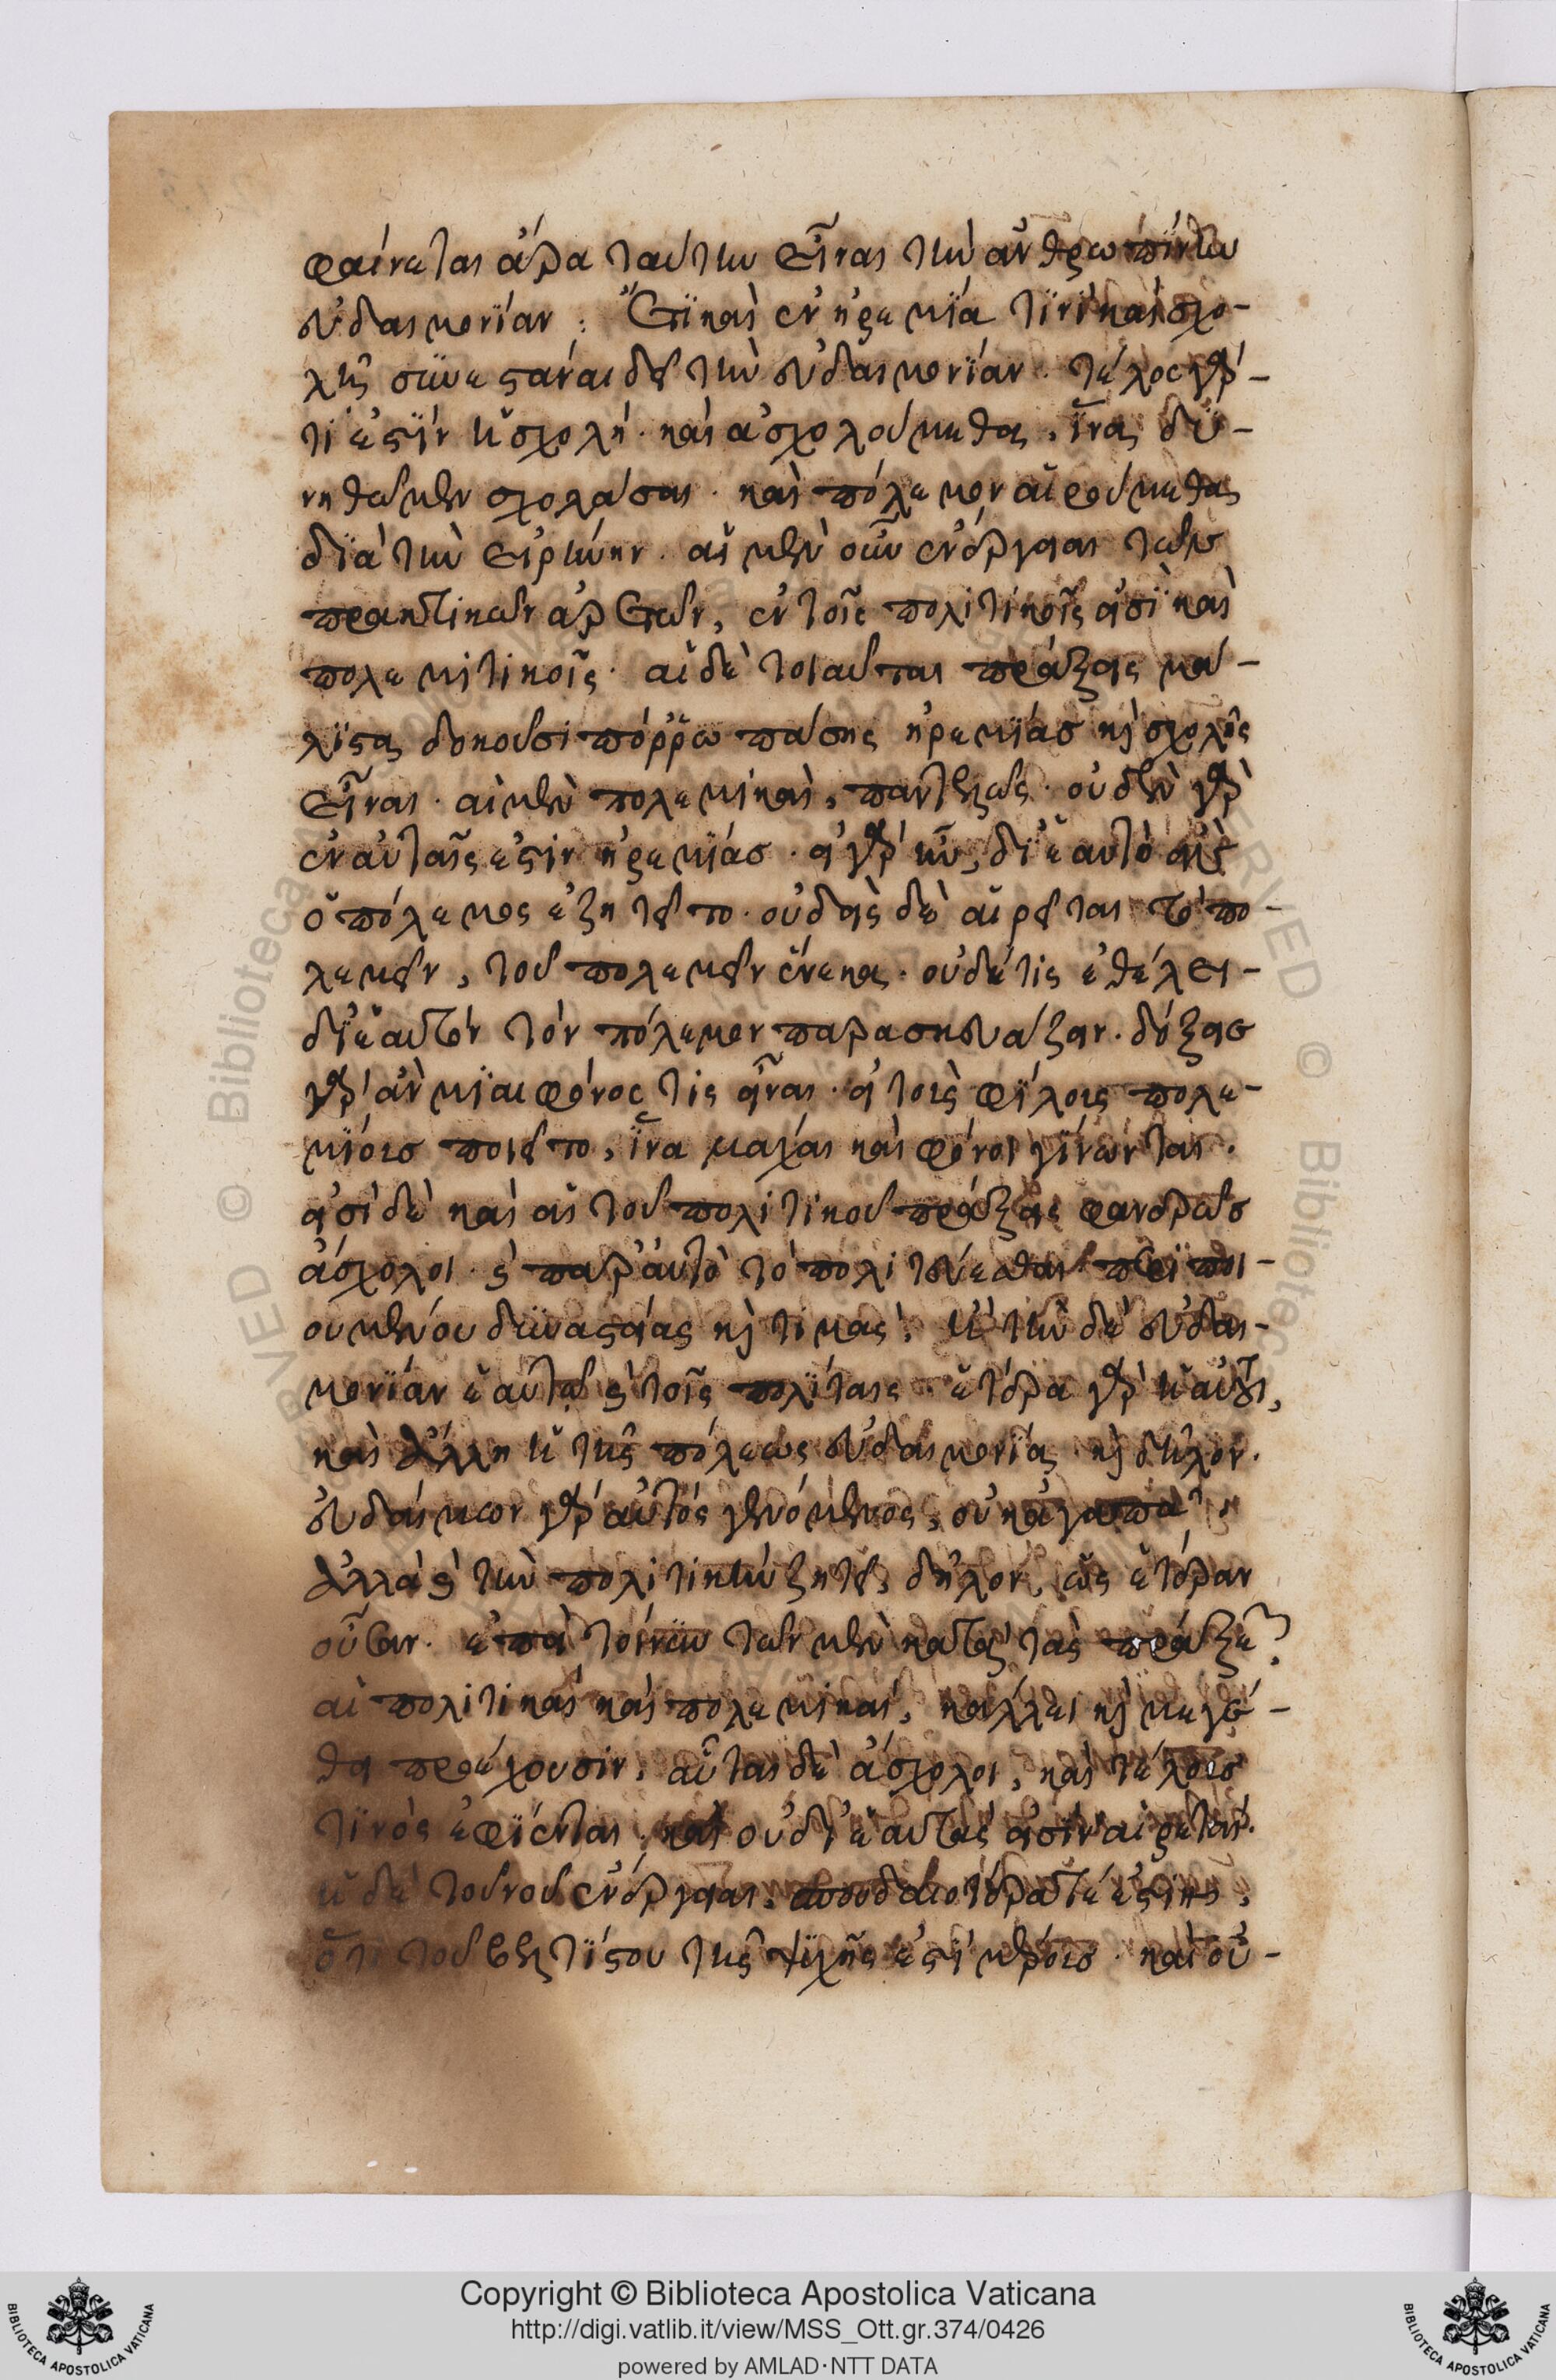 φαίνεται ἄρα ταύτην εἶναι τὴν ἀνθρωπίνην
εὐδαιμονίαν : Ἔτι καὶ ἐν ἠρεμία τινὶ καὶ σχο-
λῆς συνεστάναι δεῖ τὴν εὐδαιμονίαν. τέλος γάρ-
τί ἐστιν ἡ σχολή. καὶ ἀσχολούμεθα, ἵνα δυ-
νηθῶμεν σχολάσαι. καὶ πόλεμον αἱρούμεθα
διὰ τὴν εἰρήνην. αἱ μὲν οὖν ἐνέργειαι τῶν
πρακτικῶν ἀρετῶν, ἐν τοῖς πολιτικοῖς εἰσὶ καὶ
πολεμιτικοῖς. αἱ δὲ τοιαῦται πράξεις μά-
λιστα δοκοῦσι πόρρω πάσης ἠρεμίας καὶ σχολῆς
εἶναι. αἱ μὲν πολεμικαὶ, παντελῶς. οὐδὲν γὰρ
ἐν αὐταῖς ἐστιν ἠρεμίας. εἰ γὰρ ἦν, δι ἑαυτὸ
ὁ πόλεμος ἐζητεῖτο. οὐδεὶς δὲ αἱρεῖται τὸ πο-
λεμεῖν, τοῦ πολεμεῖν ἕνεκα. οὐδέ τις ἐθέλει-
δι ἑαυτὸν τὸν πόλεμον παρασκευάζειν. δόξαι
γὰρ ἂν μιαιφόνος τις εἶναι. εἰ τοὺς φίλους πολε-
μίους ποιεῖτο, ἵνα μάχαι καὶ φόνοι γίνωνται.
εἰσὶ δὲ καὶ αἱ τοῦ πολιτικοῦ πράξεις φανερῶς
ἄσχολοι. καὶ παρ' αὐτὸ τὸ πολιτεύεσθαι περιποι-
ουμένου δυναστείας καὶ τιμάς. ἢ τὴν δὲ εὐδαι-
μονίαν ἑαυτῷ καὶ τοῖς πολίταις. ἑτέρα γὰρ ἡ αὐτοῦ,
καὶ ἄλλη ἡ τῆς πόλεως εὐδαιμονία. καὶ δῆλον.
εὐδαίμων γὰρ αὐτὸς γενόμενος, οὐκ ἀγαπᾷ.
ἀλλὰ καὶ τὴν πολιτικὴν ζητεῖ, δῆλον, ὡς ἑτέραν
οὖσαν. ἐπεὶ τοίνυν τῶν μὲν κατὰ τὰς πράξεις
αἱ πολιτικαὶ καὶ πολεμικαί, κάλλει καὶ μεγέ-
θει προέχουσιν, αὗται δὲ ἄσχολοι, καὶ τέλους
τινὸς ἐφίενται. καὶ οὐ δι ἑαυτάς εἰσιν αἱρεταί.
ἡ δὲ τοῦ νοῦ ἐνέργεια, σπουδαιοτέρα τέ ἐστιν,
ὅτι τοῦ βελτίστου τῆς ψυχῆς ἐστὶ μέρους. καὶ οὐ-
Copyright © Biblioteca Apostolica Vaticana
http://digi.vatlib.it/view/MSS_Ott.gr.374/0426
powered by AMLAD·NTT DATA